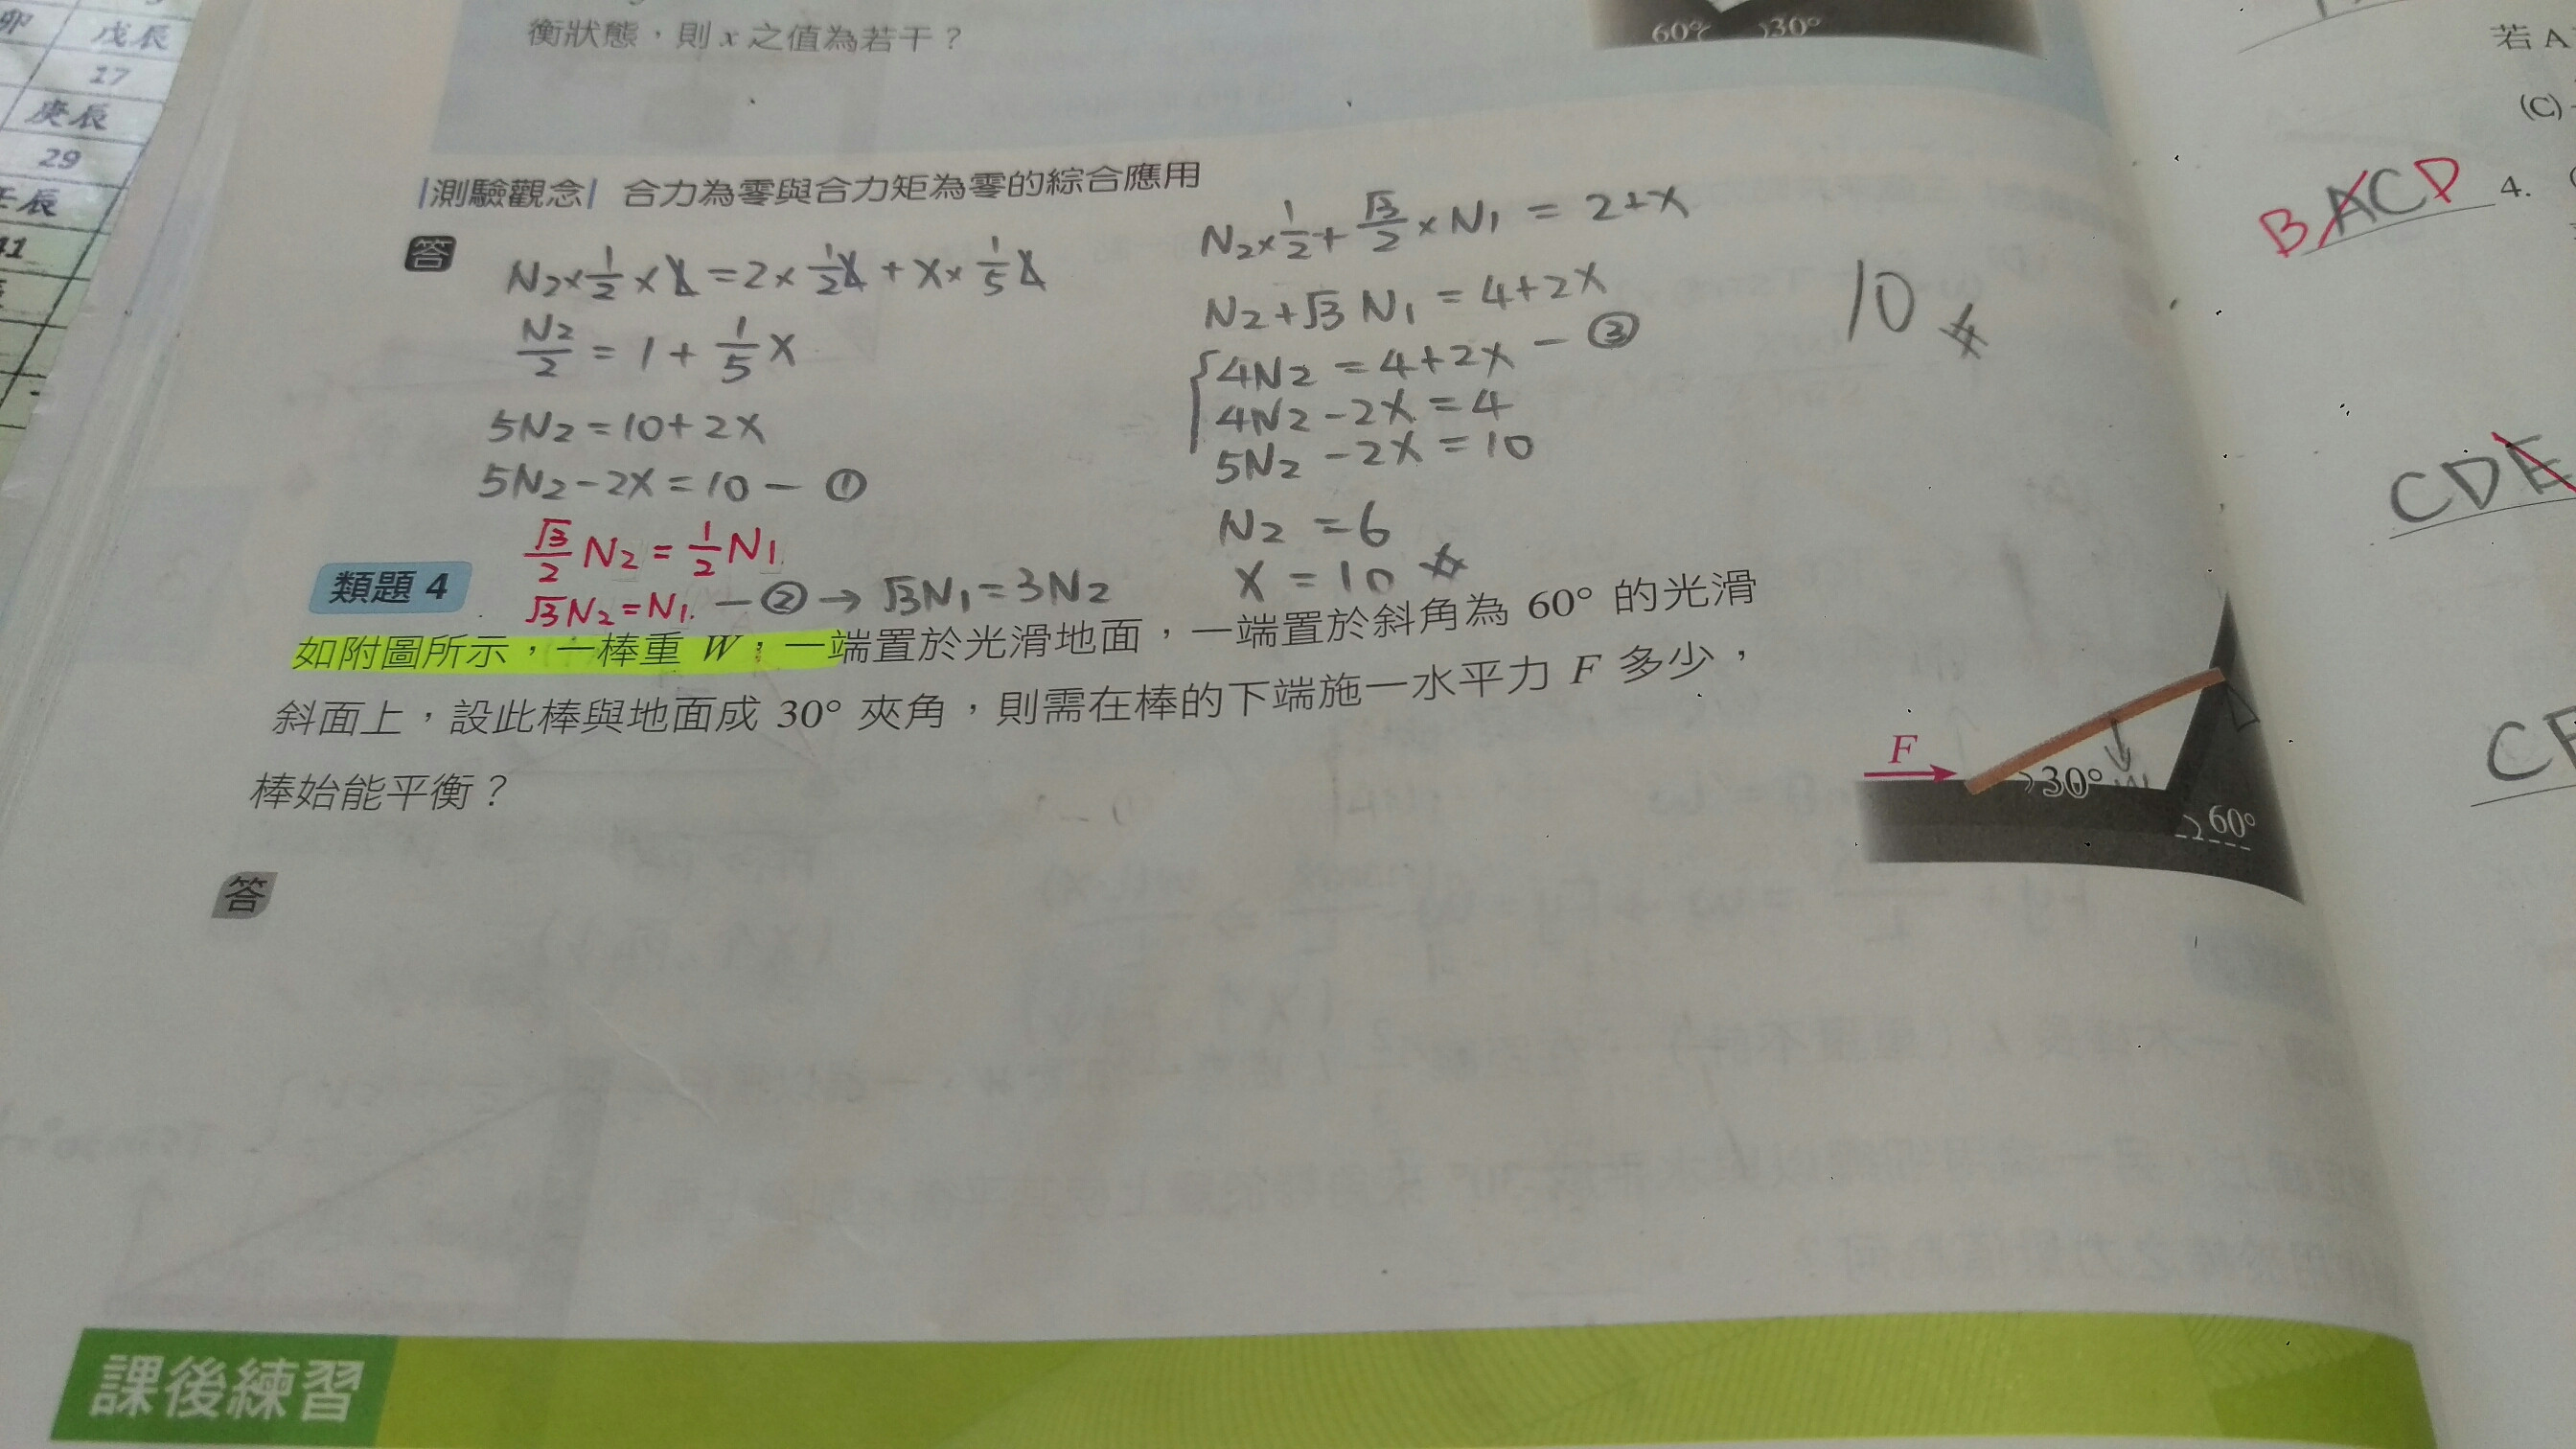 卯
戊辰
17
庚辰
29
壬辰
41
衡狀態，則 x 之值為若干？
60° 30°
|測驗觀念| 合力為零與合力矩為零的綜合應用
答
N₂×1/2×X=2×1/2X+X×1/5X
N₂/2 = 1+1/5X
5N₂=10+2X
5N₂-2X=10-①
√3/2 N₂=1/2 N₁
√3N₂=N₁. -②→ √3N₁=3N₂
N₂×1/2+√3/2×N₁=2+X
N₂+√3N₁=4+2X
4N₂=4+2X-③
4N₂-2X=4
5N₂-2X=10
N₂=6
X=10
10
類題 4
如附圖所示，一棒重 W，一端置於光滑地面，一端置於斜角為 60° 的光滑
斜面上，設此棒與地面成 30° 夾角，則需在棒的下端施一水平力 F 多少，
棒始能平衡？
F
30°
W
60°
答
課後練習
若 A
(C)
BACD 4.
CDE